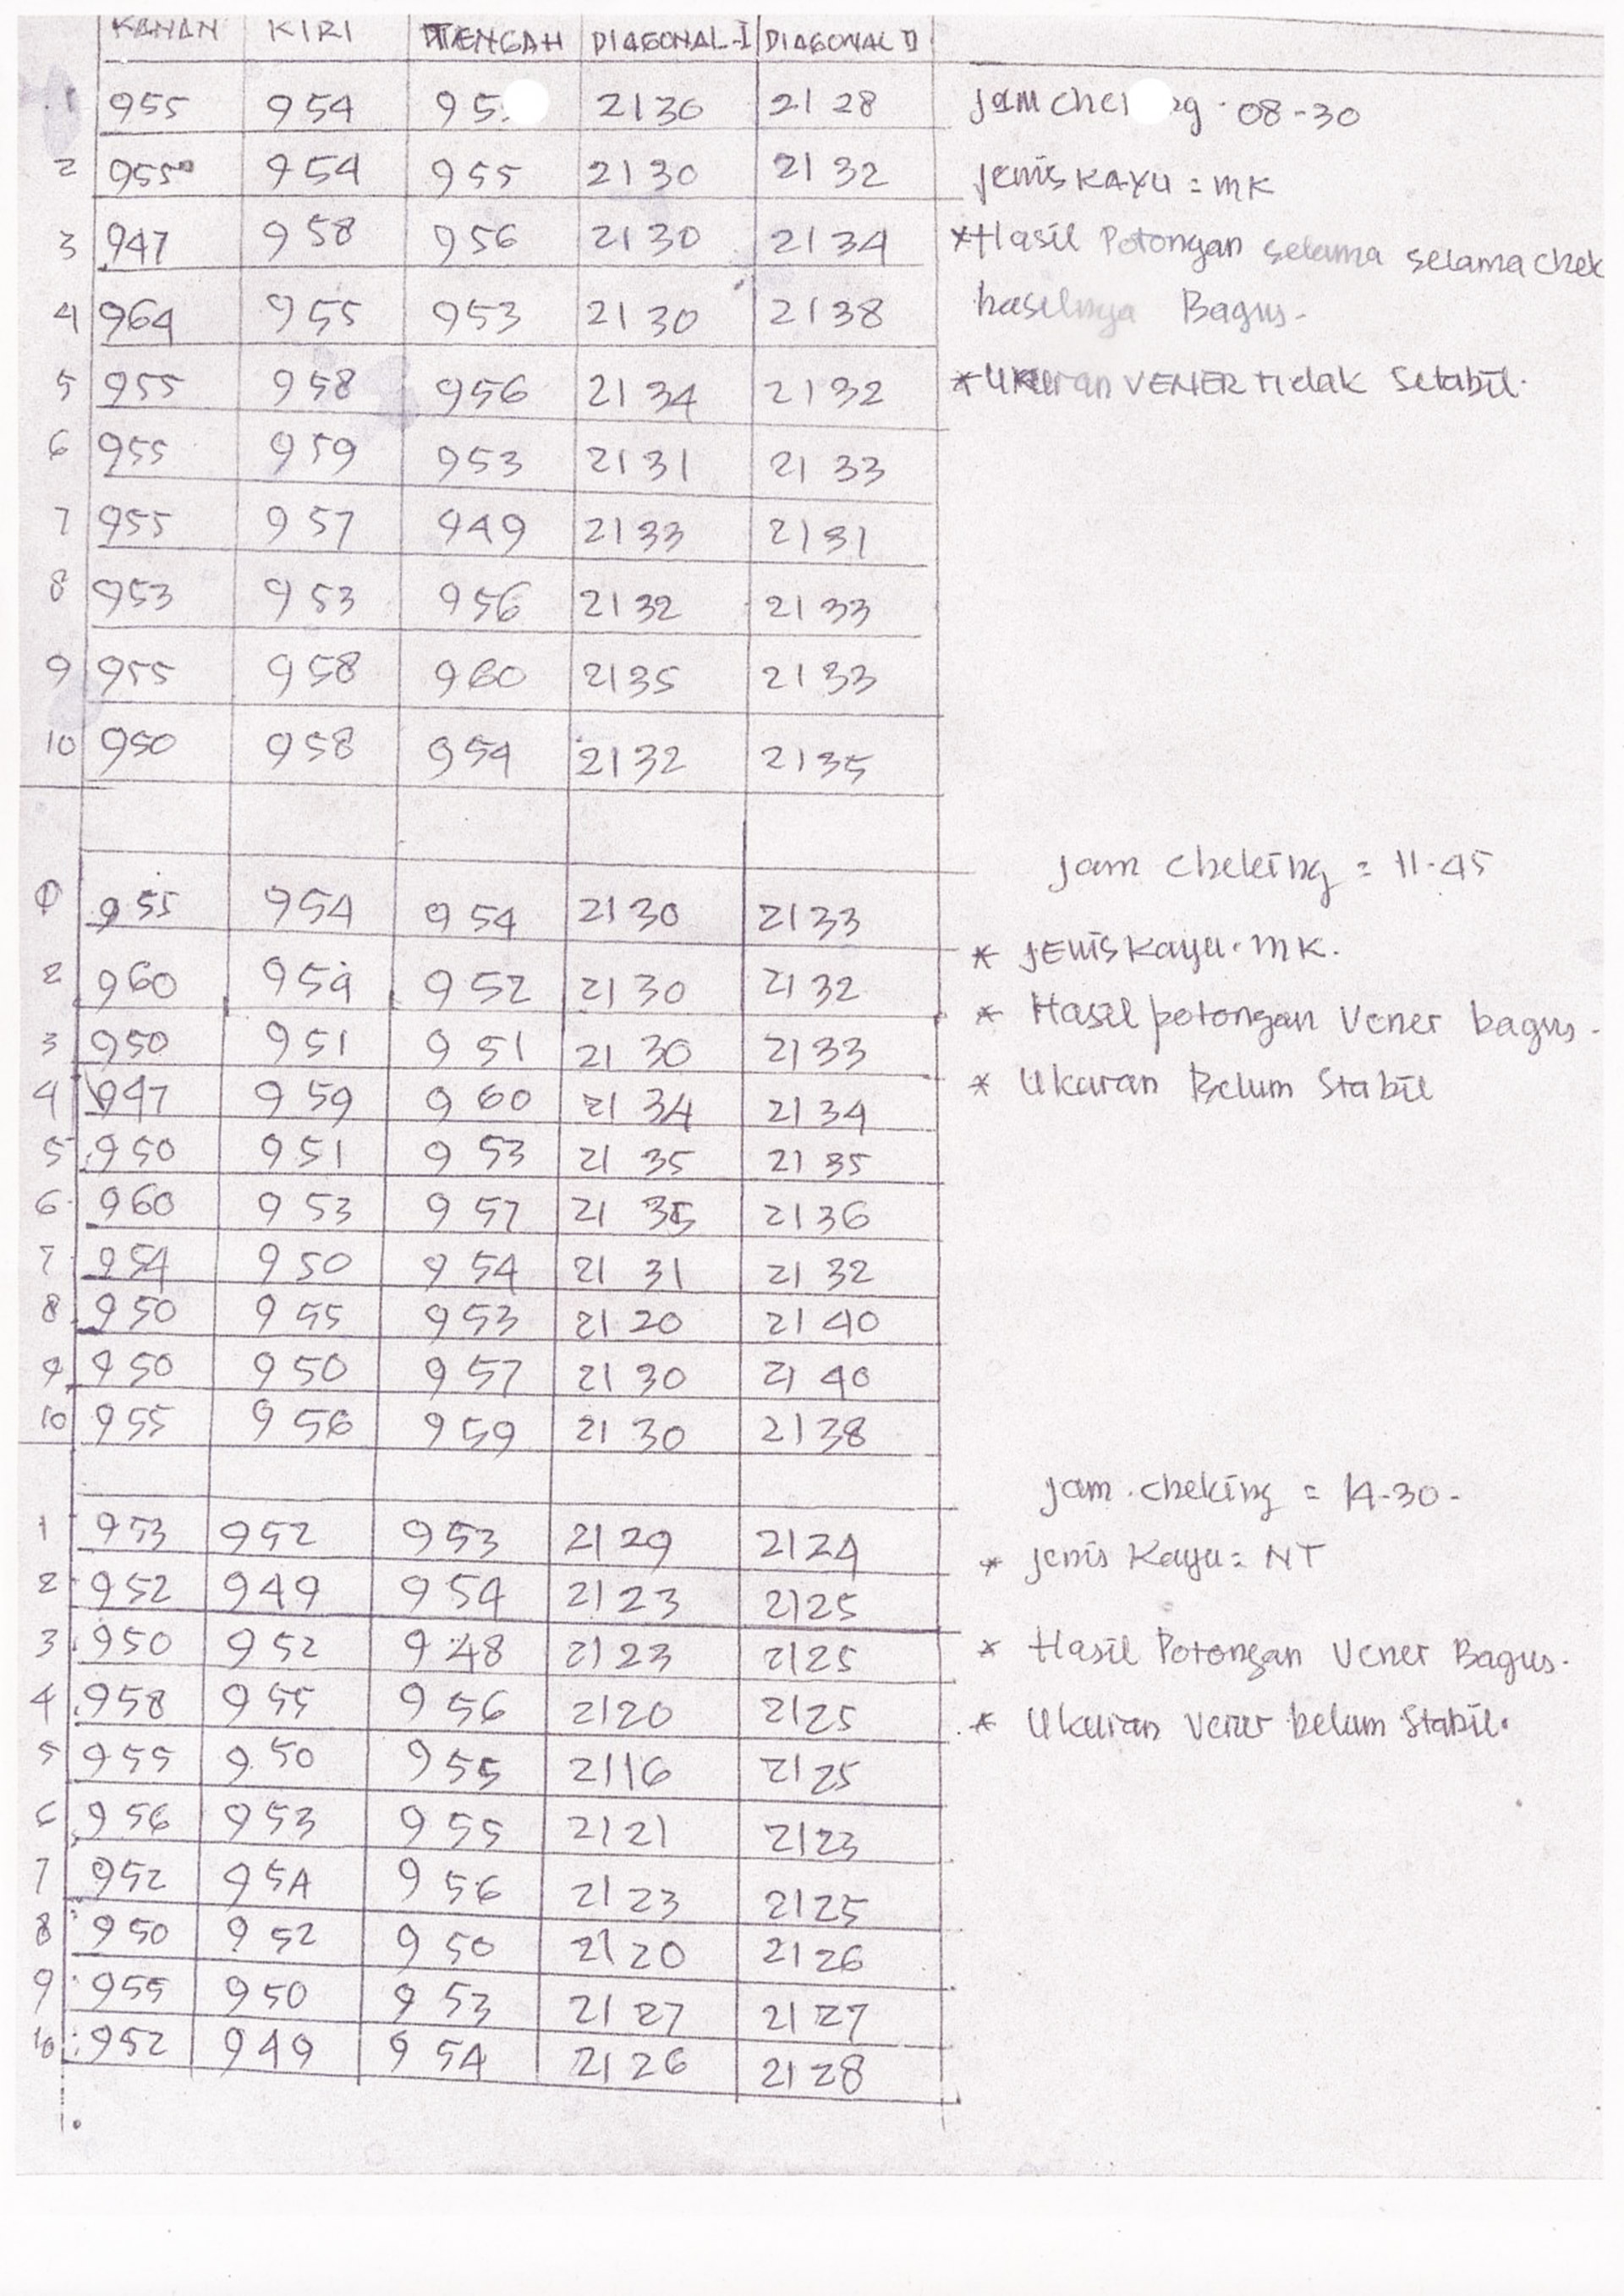 KANAN KIRI TENGAH DIAGONAL-I DIAGONAL II
1 955 954 2130 2128 08-30
2 955 954 955 2130 2132 JENIS KAYU = MK
3 947 958 956 2130 2134 *Hasil Potongan selama selama chek
4 964 955 953 2130 2138 hasilnya Bagus-
5 955 958 956 2134 2132 *Ukuran VENER tidak Setabil.
6 955 959 953 2131 2133
7 955 957 949 2133 2131
8 953 953 956 2132 2133
9 955 958 960 2135 2133
10 950 958 954 2132 2135
Jam Cheking = 11-45
1 955 954 954 2130 2133 * JENIS Kayu. MK.
2 960 954 952 2130 2132 * Hasil potongan Vener bagus-
3 950 951 951 2130 2133
4 947 959 960 2134 2134 * Ukuran Belum Stabil
5 950 951 953 2135 2135
6 960 953 957 2135 2136
7 954 950 954 2131 2132
8 950 955 953 2120 2140
9 950 950 957 2130 2140
10 955 956 959 2130 2138
Jam. cheking = 14-30-
1 953 952 953 2129 2124 * jenis Kayu = NT
2 952 949 954 2123 2125
3 950 952 948 2123 2125 * Hasil Potongan Vener Bagus.
4 958 955 956 2120 2125 * Ukuran Vener belum Stabil.
5 955 950 955 2116 2125
6 956 953 955 2121 2123
7 952 954 956 2123 2125
8 950 952 950 2120 2126
9 955 950 953 2127 2127
10 952 949 954 2126 2128